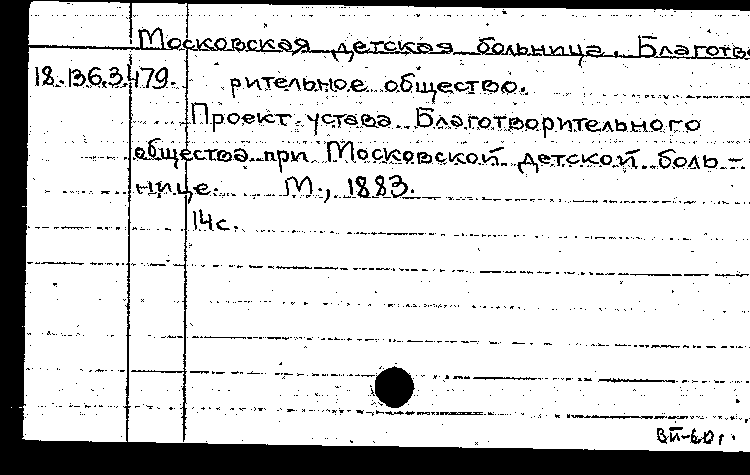 Московская детская больница. Благотво
18.136.3.479. рительное общество.
Проект устава Благотворительного
общества при Московской детской боль-
нице. М., 1883.
14с.